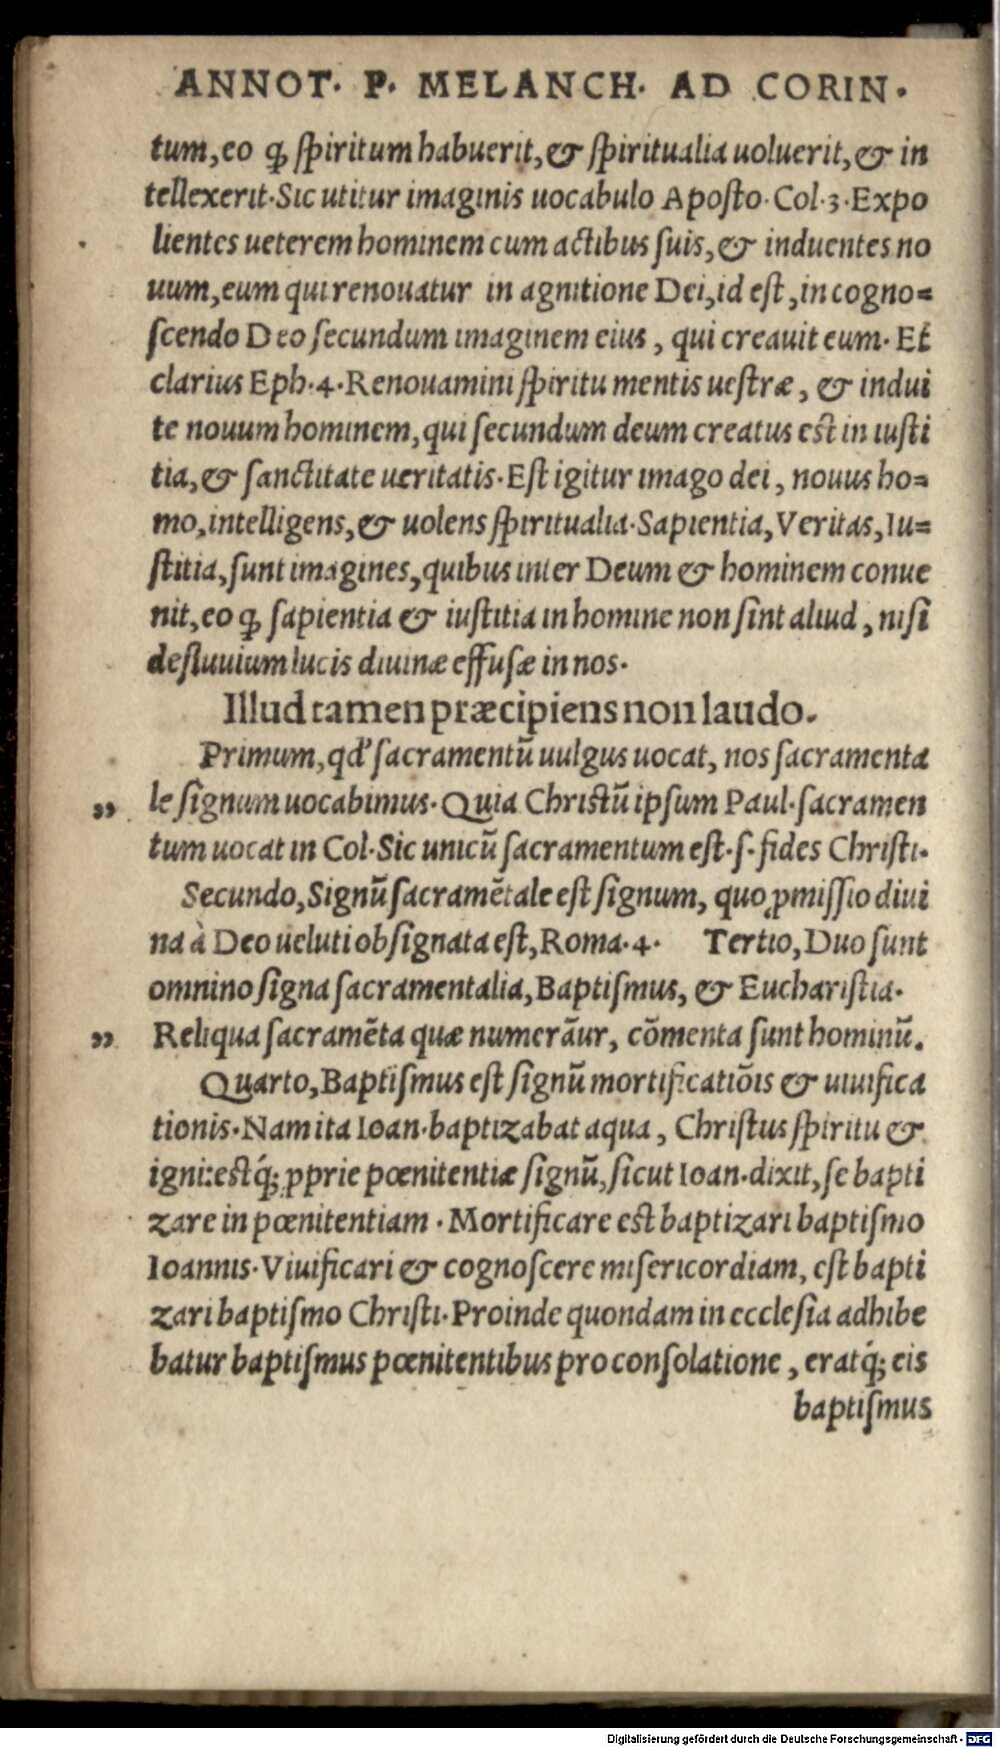 ANNOT. P. MELANCH. AD CORIN.
tum, eo ꝙ ſpiritum habuerit, & ſpiritualia uoluerit, & in
tellexerit. Sic utitur imaginis uocabulo Apoſto. Col. 3. Expo
lientes ueterem hominem cum actibus ſuis, & induentes no
uum, eum qui renouatur in agnitione Dei, id eſt, in cogno=
ſcendo Deo ſecundum imaginem eius, qui creauit eum. Et
clarius Eph. 4. Renouamini ſpiritu mentis ueſtræ, & indui
te nouum hominem, qui ſecundum deum creatus eſt in iuſti
tia, & ſanctitate ueritatis. Eſt igitur imago dei, nouus ho=
mo, intelligens, & uolens ſpiritualia. Sapientia, Veritas, Iu=
ſtitia, ſunt imagines, quibus inter Deum & hominem conue
nit, eo ꝙ ſapientia & iuſtitia in homine non ſint aliud, niſi
defluuium lucis diuinæ effuſæ in nos.
Illud tamen præcipiens non laudo.
Primum, qd' ſacramentū uulgus uocat, nos ſacramenta
„ le ſignum uocabimus. Quia Chriſtū ipſum Paul. ſacramen
tum uocat in Col. Sic unicū ſacramentum eſt. ſ. fides Chriſti.
Secundo, Signū ſacramētale eſt ſignum, quo ꝓmiſſio diui
na à Deo ueluti obſignata eſt, Roma. 4. Tertio, Duo ſunt
omnino ſigna ſacramentalia, Baptiſmus, & Euchariſtia.
„ Reliqua ſacramēta quæ numerāur, cōmenta ſunt hominū.
Quarto, Baptiſmus eſt ſignū mortificatiōis & uiuifica
tionis. Nam ita Ioan. baptizabat aqua, Chriſtus ſpiritu &
igni: eſtq́; ꝓprie pœnitentiæ ſignū, ſicut Ioan. dixit, ſe bapti
zare in pœnitentiam. Mortificare eſt baptizari baptiſmo
Ioannis. Viuificari & cognoſcere miſericordiam, eſt bapti
zari baptiſmo Chriſti. Proinde quondam in eccleſia adhibe
batur baptiſmus pœnitentibus pro conſolatione, eratq́; eis
baptiſmus
Digitalisierung gefördert durch die Deutsche Forschungsgemeinschaft - DFG